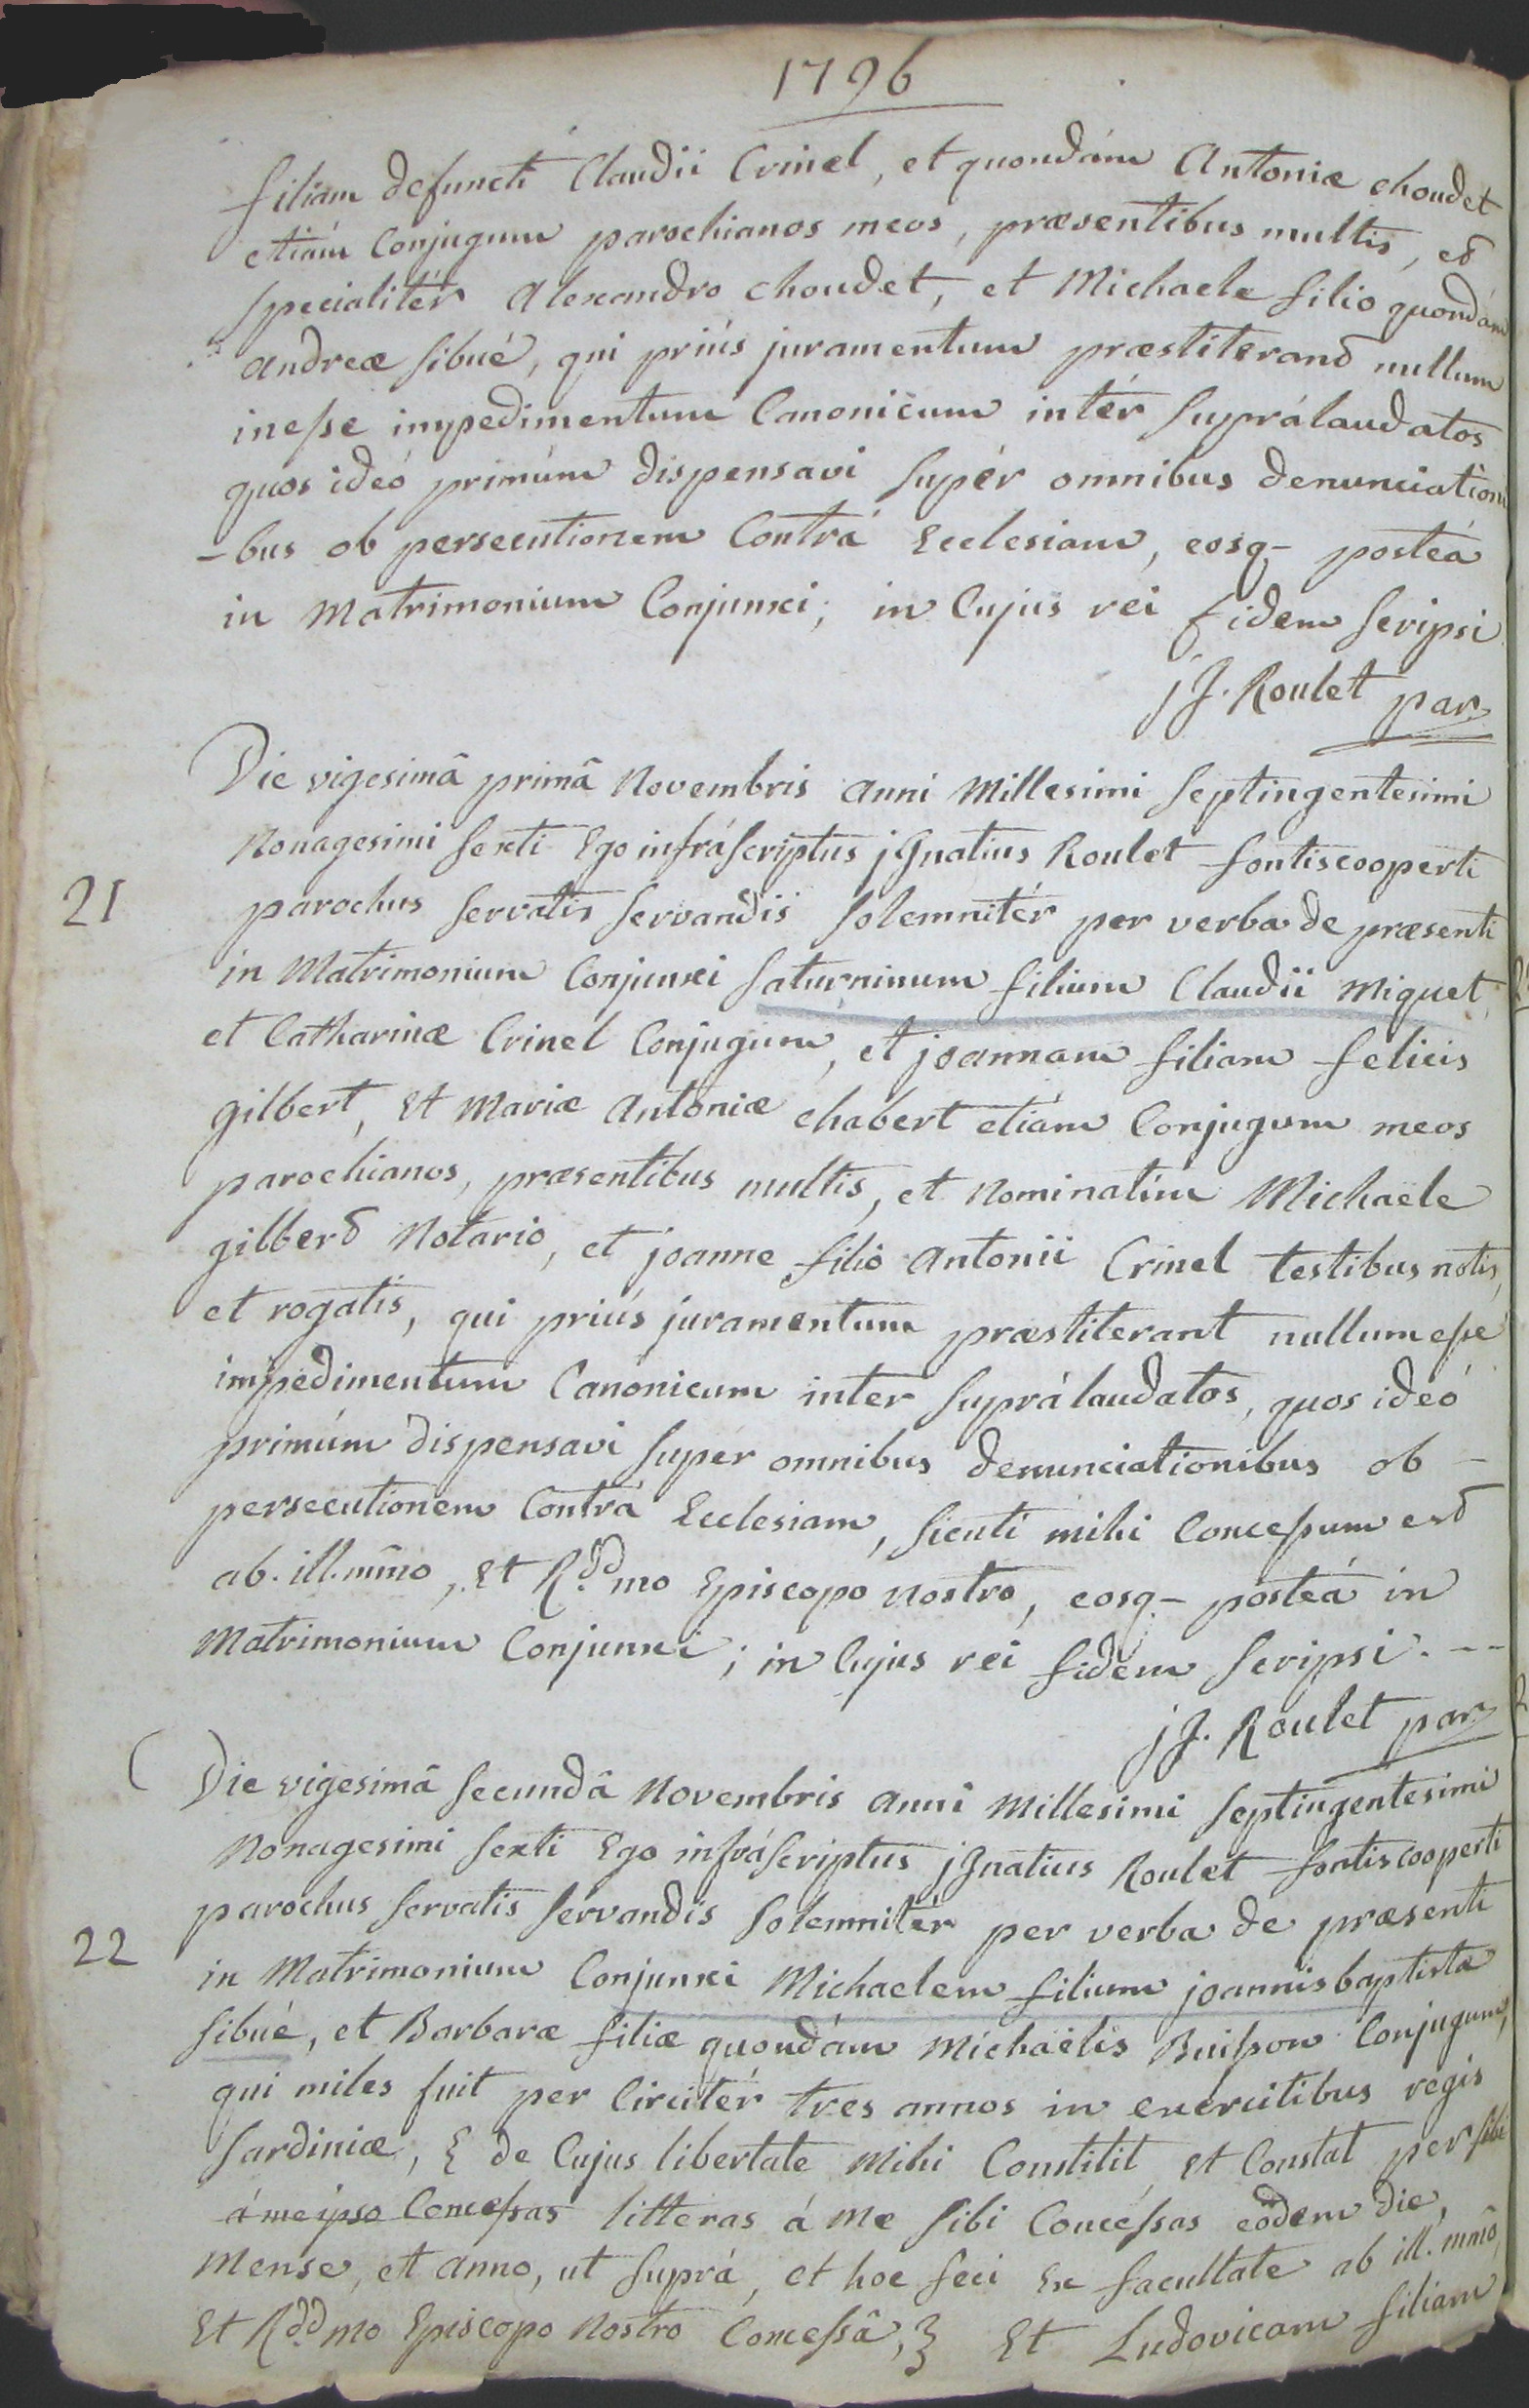 1796
filiam defuncti Claudii Crinel, et quondám Antoniæ choudet
etiám Conjugum parochianos meos, præsentibus multis, et
specialitér Alexandro choudet, et Michaele filio quondám
andreæ sibué, qui priús juramentum præstiterant nullum
inesse impedimentum Canonicum intér suprálaudatos
quos ideó primúm dispensavi supér omnibus denunciationi
-bus ob persecutionem Contrá Ecclesiam, eosq- posteá
in Matrimonium Conjunxi; in Cujus rei fidem scripsi
jJ. Roulet par
Die vigesimâ primâ Novembris anni Millesimi septingentesimi
Nonagesimi sexti Ego infráscriptus jGnatius Roulet fontiscooperti
21 parochus servatis servandis solemnitér per verba de præsenti
in Matrimonium Conjunxi saturninum filium Claudii Miquet,
et Catharinæ Crinel Conjugum, et joannam filiam felicis
gilbert, Et Mariæ Antoniæ chabert etiám Conjugum meos
parochianos, præsentibus multis, et Nominatim Michaële
gilbert Notario, et joanne filio Antonii Crinel testibus notis,
et rogatis, qui priús juramentum præstiterant nullum esse
impedimentum Canonicum inter suprálaudatos, quos ideó
primúm dispensavi supér omnibus denunciationibus ob -
persecutionem Contrá Ecclesiam, sicuti mihi Concessum est
ab. ill.mmo, Et R.ddmo Episcopo nostro, eosq- posteá in
Matrimonium Conjunxi; in Cujus rei fidem scripsi. --
jJ. Roulet par
( Die vigesimâ secundâ Novembris anni Millesimi septingentesimi
Nonagesimi sexti Ego infráscriptus jGnatius Roulet fontiscooperti
parochus servatis servandis solemnitér per verba de præsenti
22 in Matrimonium Conjunxi Michaelem filium joannisbaptistæ
sibué, et Barbaræ filiæ quondám Michaëlis Buisson Conjugum,
qui miles fuit per Circitér tres annos in exercitibus regis
sardiniæ, { de Cujus libertate Mihi Constitit, et Constat per sibi
á me ipso Concessas litteras á Me sibi Concessas eôdem die,
Mense, et anno, ut suprá, et hoc feci Ex facultate ab ill.mmo,
Et R.ddmo Episcopo Nostro Concessâ, } Et Ludovicam filiam